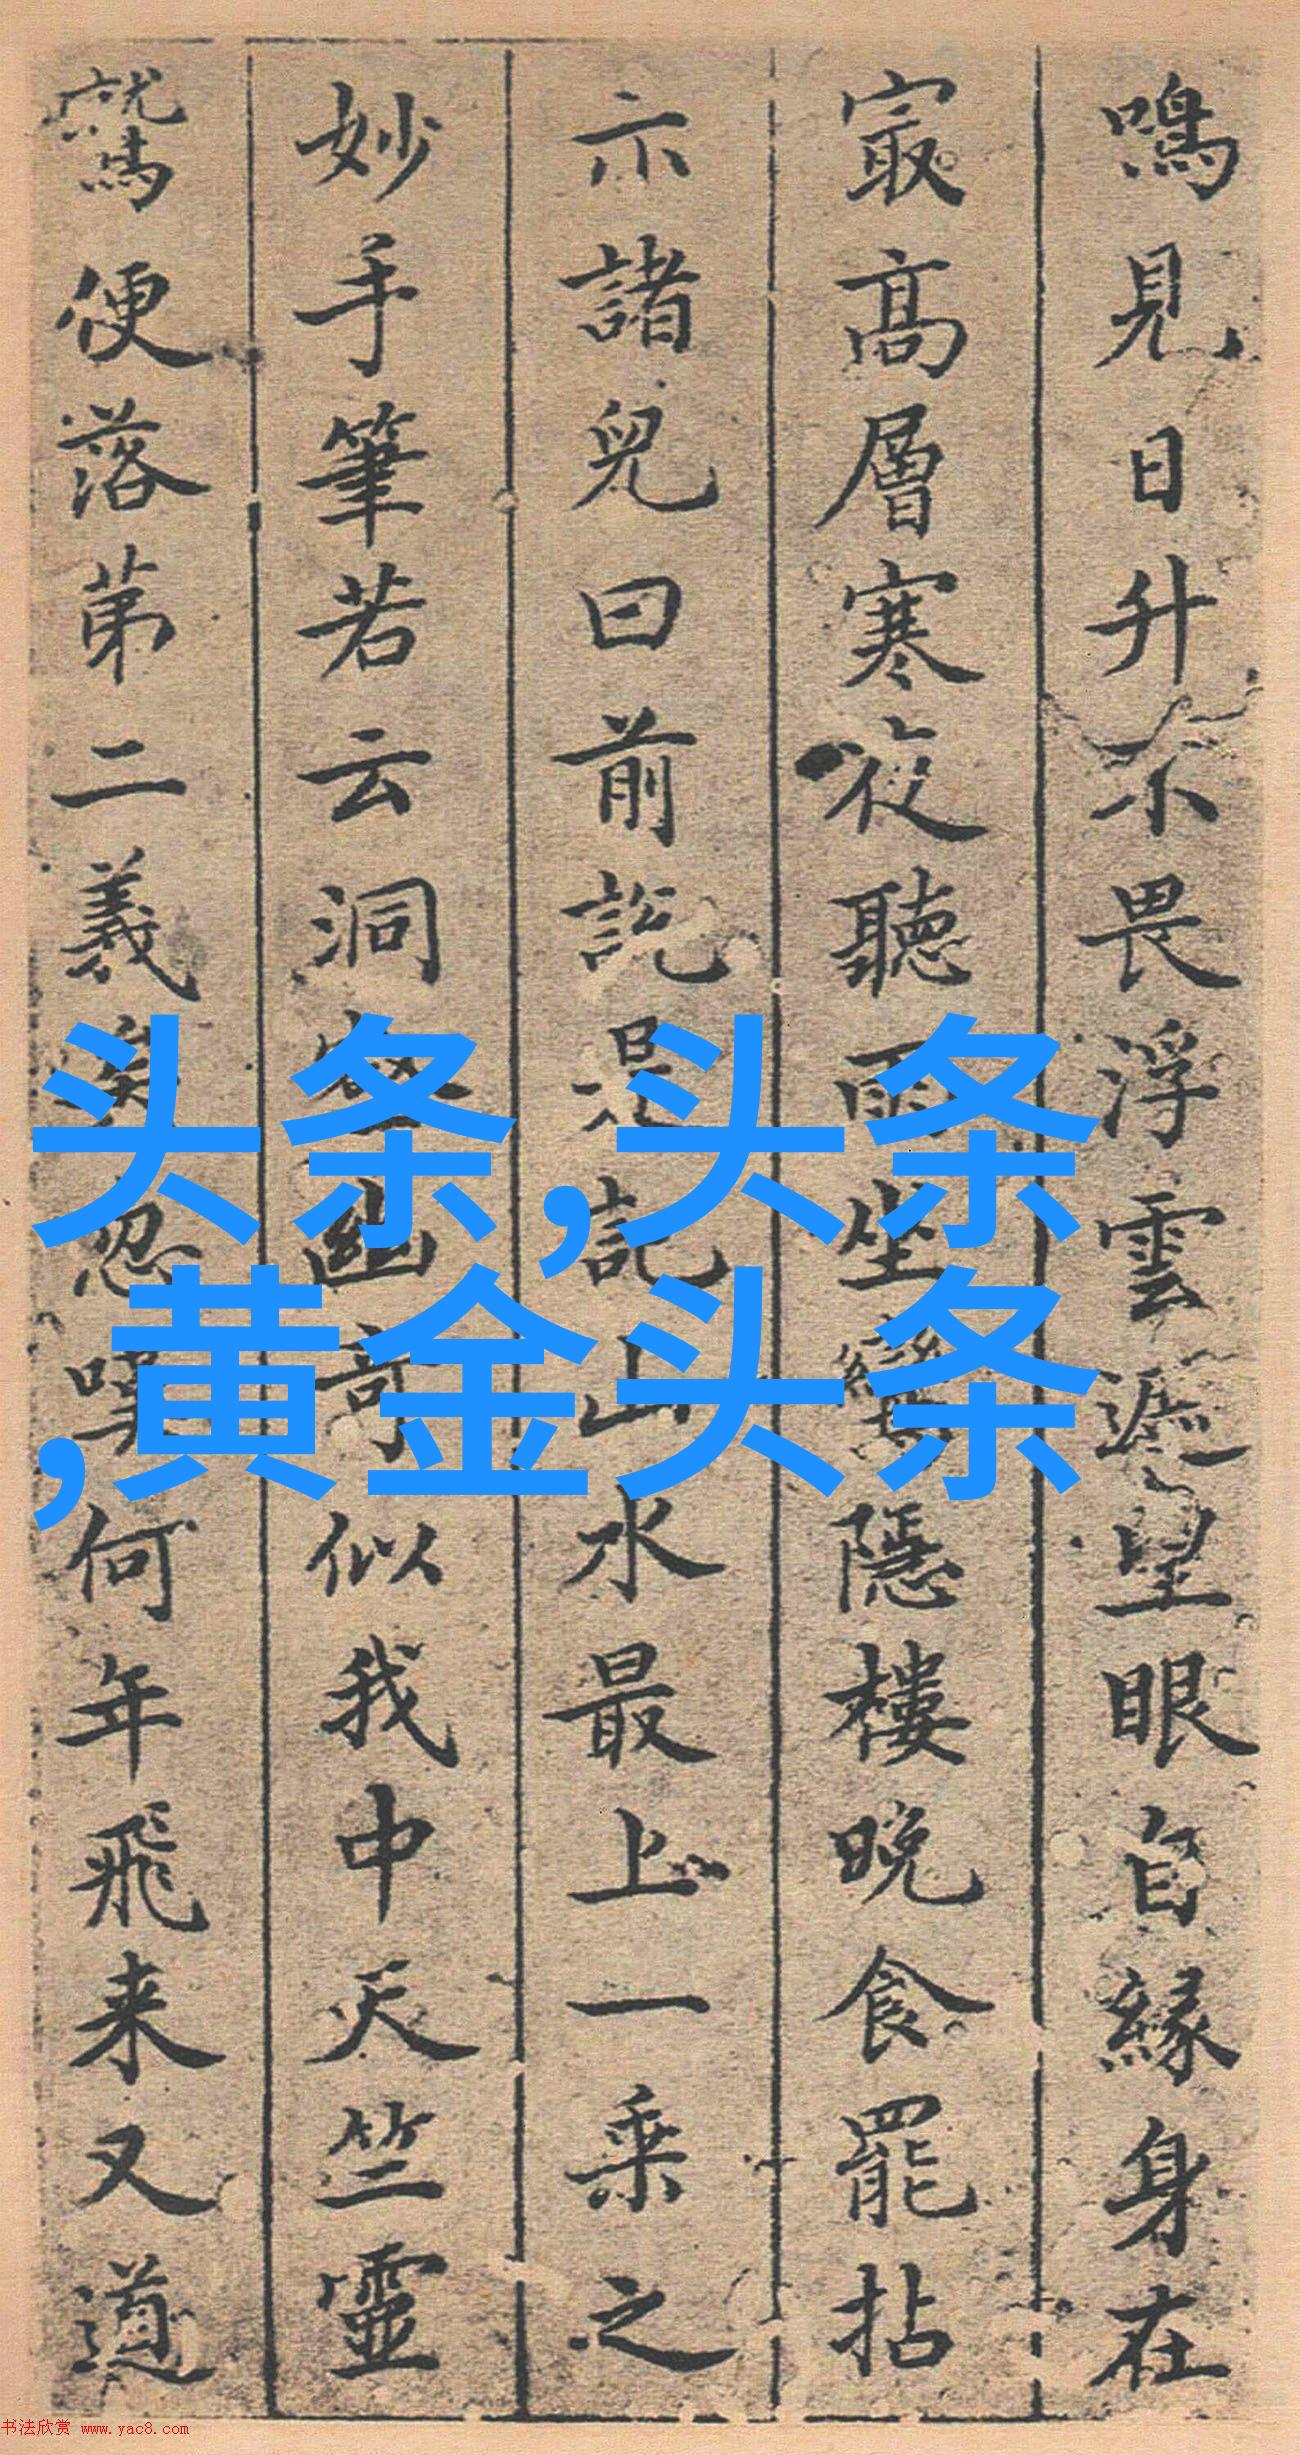 鳴見日升不畏浮雲遮望眼自緣身在
冣高層寒夜聽雨坐隱樓晚食罷拈
示諸兒曰前說是說山水最上一乘之
妙手筆若云洞壑幽奇似我中天竺靈
鷲便落第二義矣忽嘆何年飛来又道
头条,头条
,黄金头条
书法欣赏 www.yac8.com